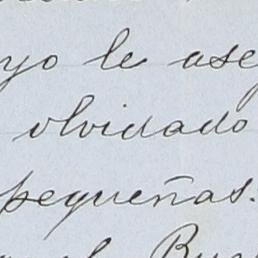 yo le ase
olvidado
pequeñas.